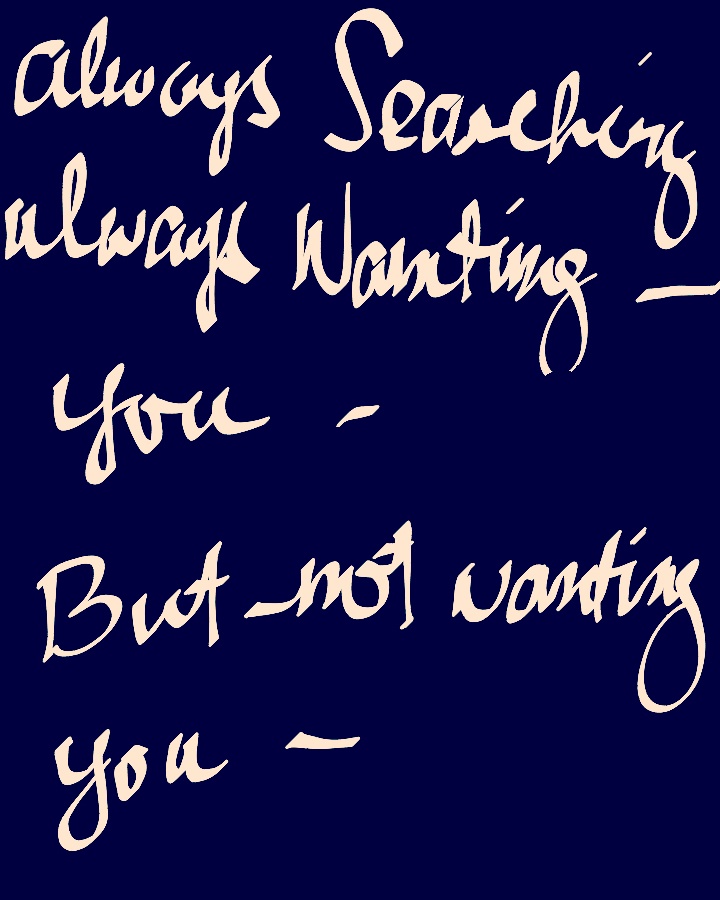 Always Searching
always Wanting —
you -
But not wanting
you —